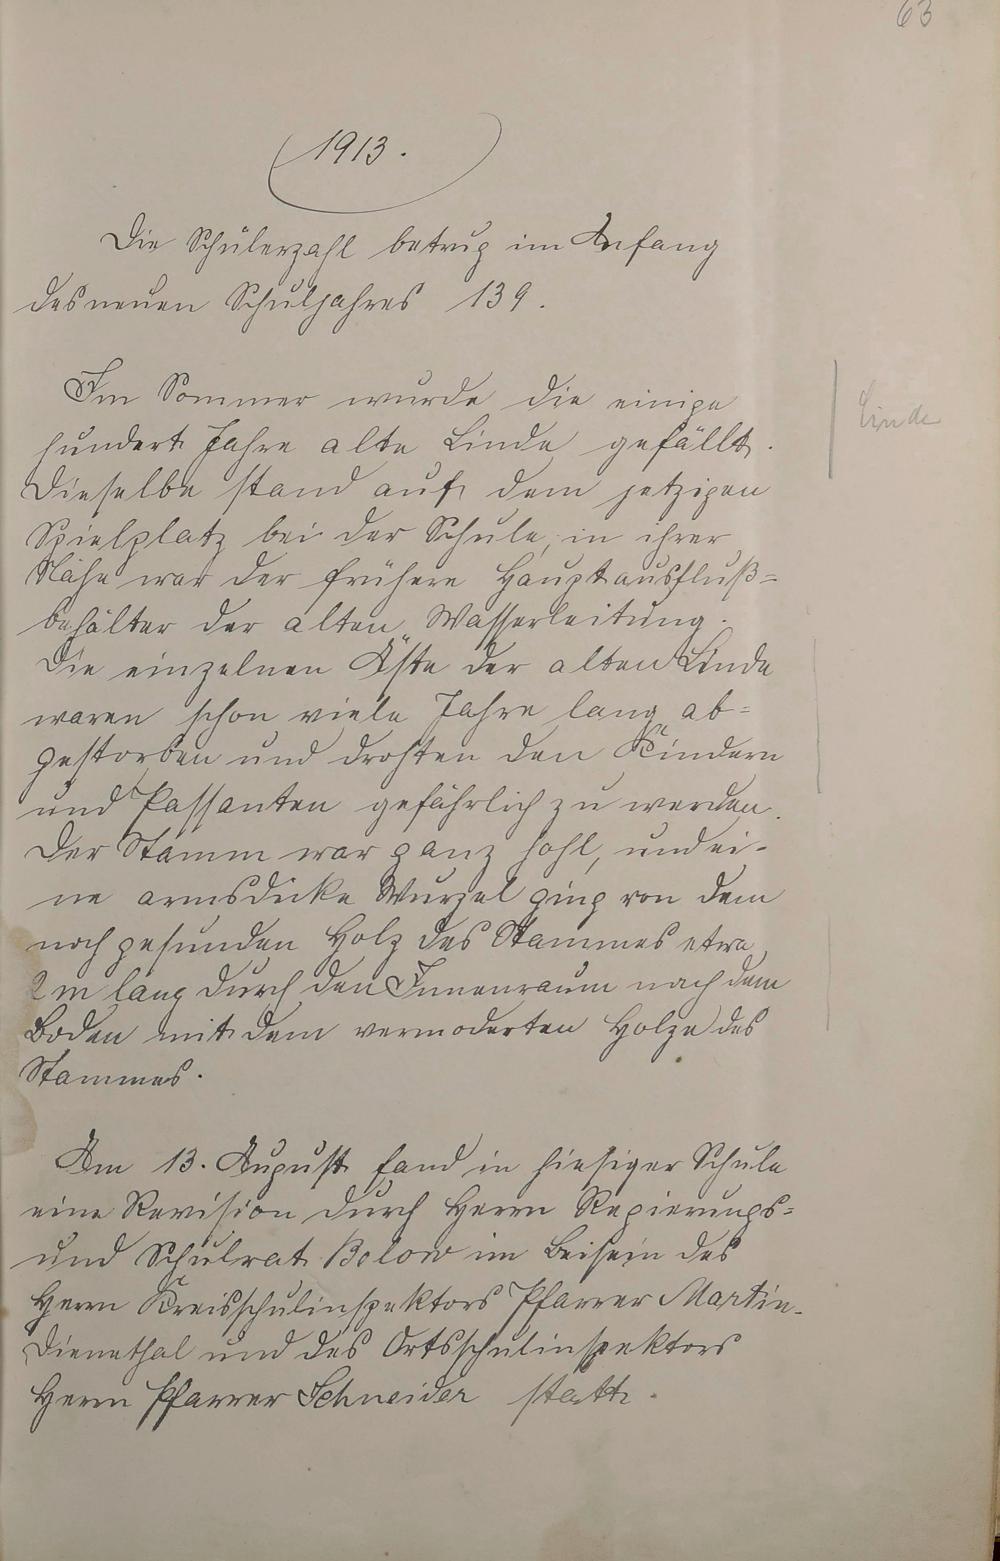 63
1913.
Die Schülerzahl betrug im Anfang
des neuen Schuljahres 139.
Im Sommer wurde die einige
hundert Jahre alte Linde gefällt.
Linde
Dieselbe stand auf dem jetzigen
Spielplatz bei der Schule, in ihrer
Nähe war der frühere Hauptausfluß=
behälter der alten Wasserleitung.
Die einzelnen Äste der alten Linde
waren schon viele Jahre lang ab=
gestorben und drohten den Kindern
und Passanten gefährlich zu werden.
Der Stamm war ganz hohl, und ei-
ne armsdicke Wurzel ging von dem
noch gesunden Holz des Stammes etwa
2 m lang durch den Innenraum nach dem
Boden mit dem vermoderten Holze des
Stammes.
Am 13. August fand in hiesiger Schule
eine Revision durch Herrn Regierungs=
und Schulrat Below im Beisein des
Herrn Kreisschulinspektors Pfarrer Martin-
Dienethal und des Ortsschulinspektors
Herrn Pfarrer Schneider statt.